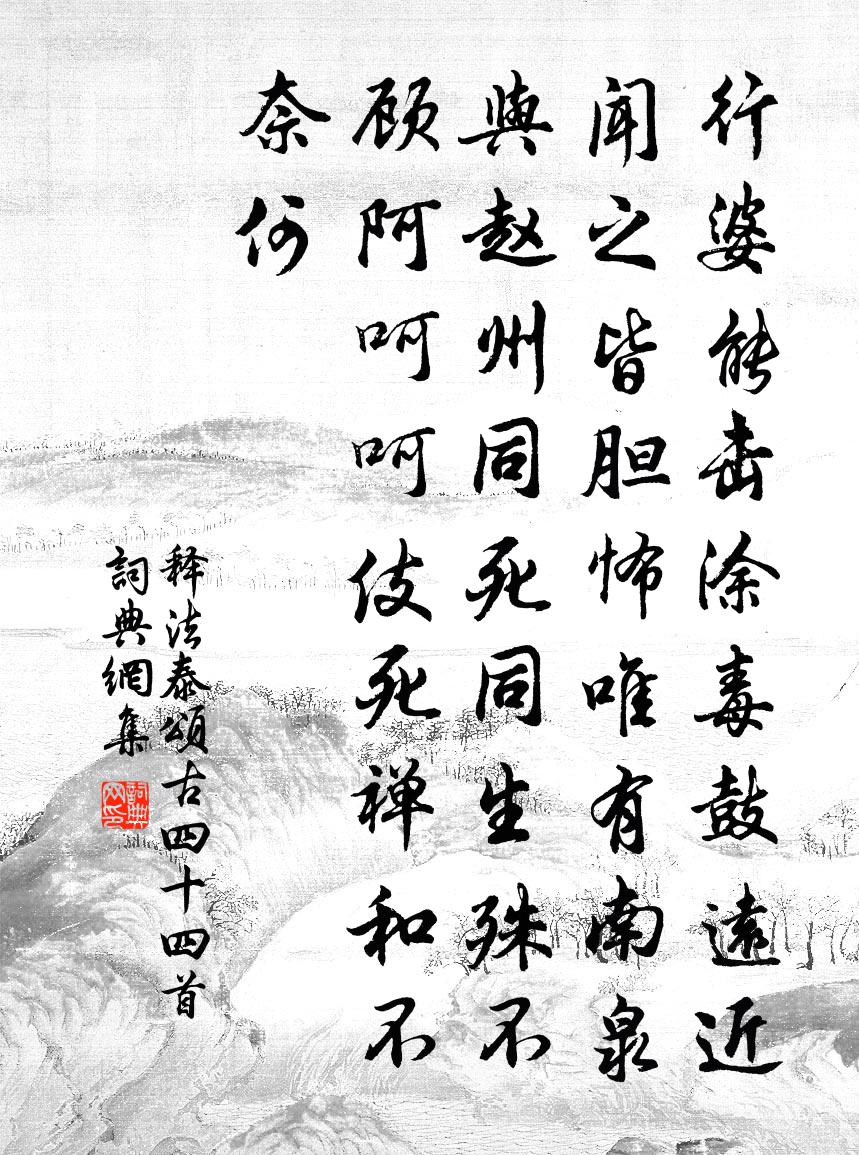 行婆能击涂毒鼓遠近
闻之皆胆怖唯有南泉
與赵州同死同生殊不
顾阿呵呵伎死禅和不
奈何
释法泰頌古四十四首
詞典網集
詞典
网印